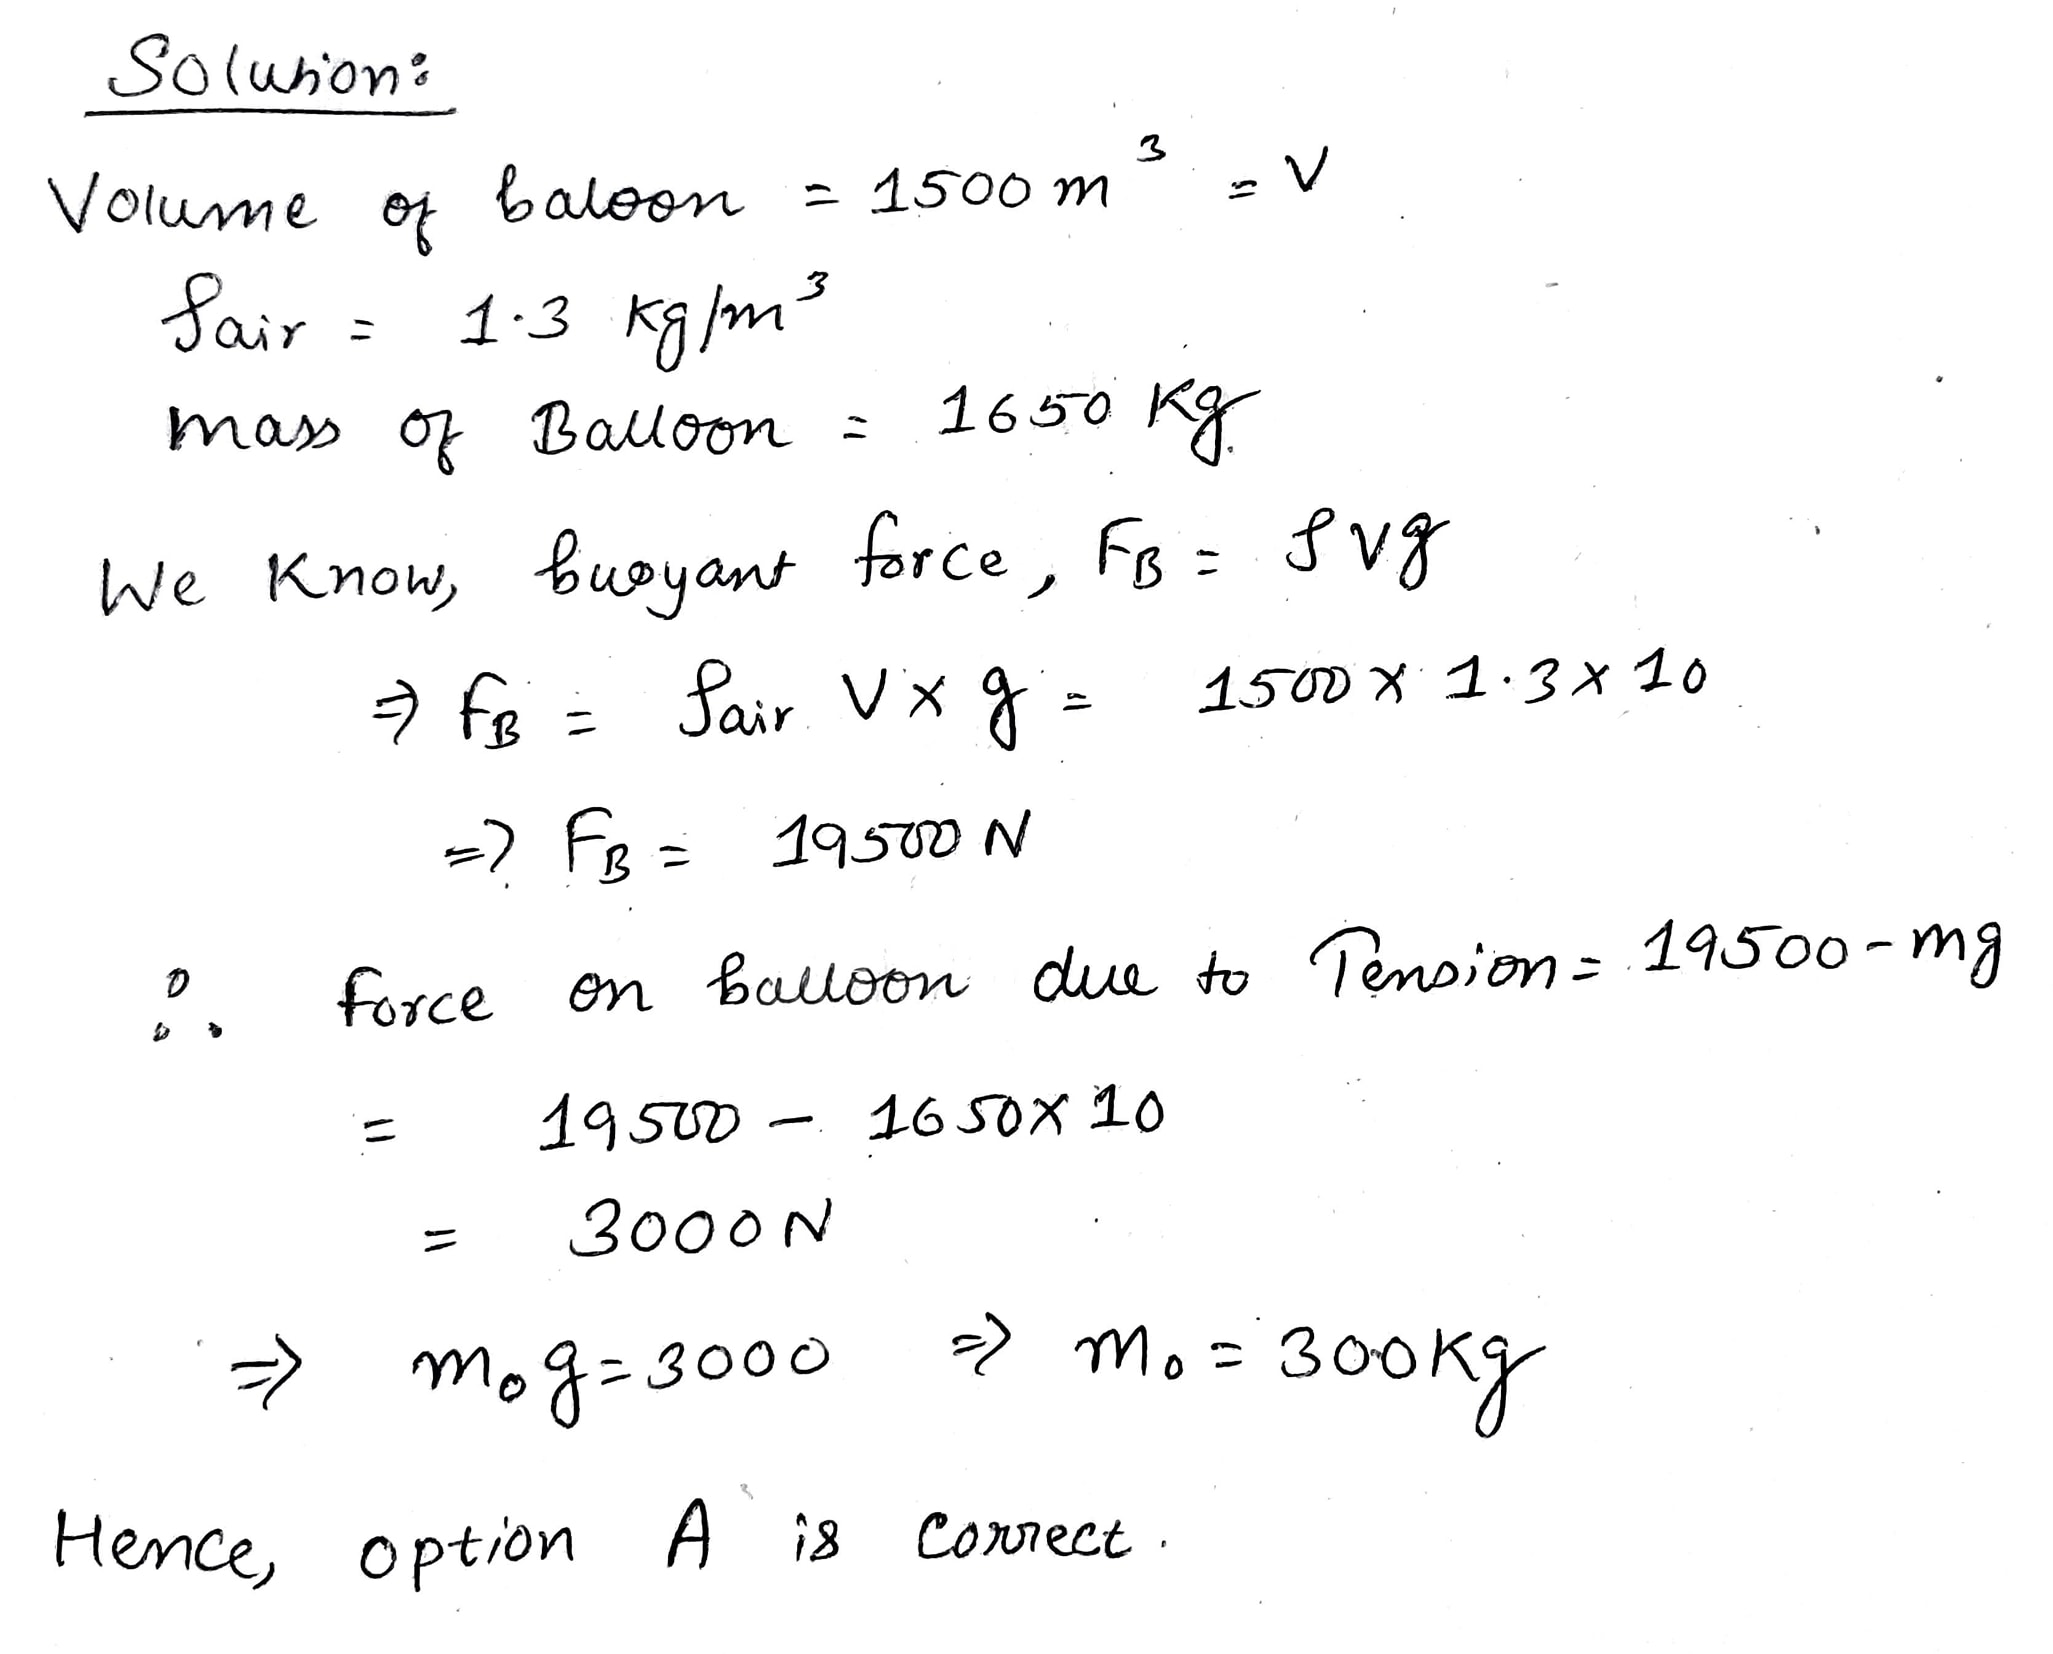 Solution:
Volume of baloon = 1500 m³ = V
ρair = 1.3 Kg/m³
mass of Balloon = 1650 Kg.
We Know, buoyant force, FB = ρVg
⇒ FB = ρair V × g = 1500 × 1.3 × 10
⇒ FB = 19500 N
∴ force on balloon due to Tension = 19500 - mg
= 19500 - 1650 × 10
= 3000 N
⇒ m₀g = 3000 ⇒ m₀ = 300 Kg
Hence, option A is correct.